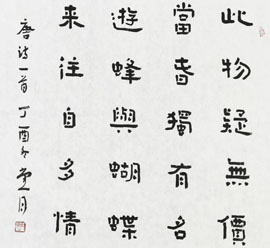 此物疑無價
當旾獨有名
遊蜂與蝴蝶
来往自多情
唐诗一首丁酉